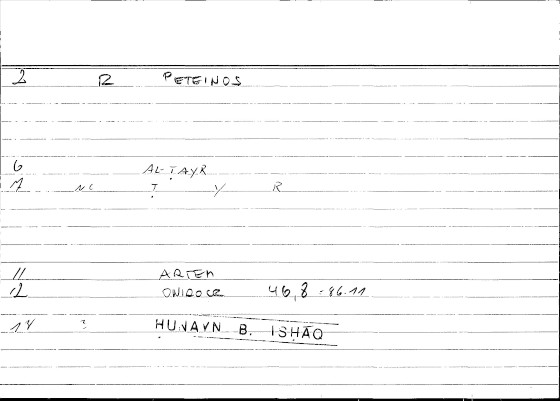 2 R PETEINOS
6 AL-ṬAYR
7 NC Ṭ Y R
11 ARTEM
12 ONIROCR 46,8 - 46.11
14 ? ḤUNAYN B. ISḤĀQ